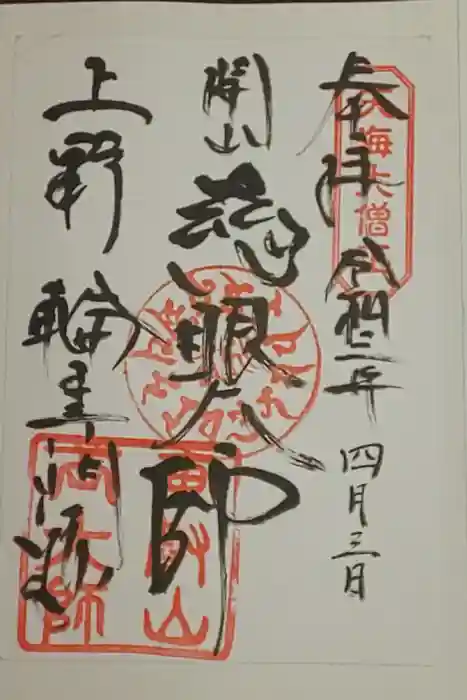 奉拝 令和三年 四月三日
天海大僧正
開山 慈眼大師
上野 輪王寺門跡
東叡山
両大師